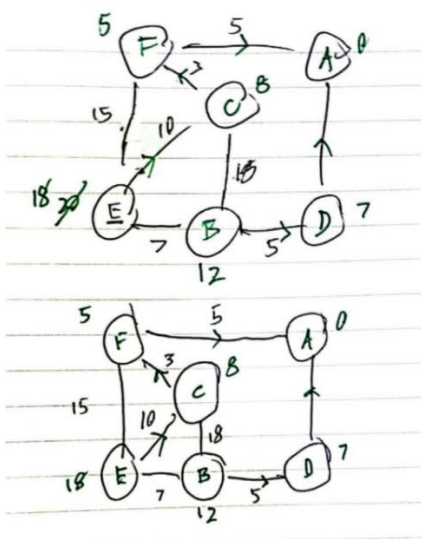 5 F 5 A 0
3
C 8
15 10
18
18 20 E B D 7
7 5
12
5 F 5 A 0
3 C 8
15 10
18
18 E B D 7
7 5
12